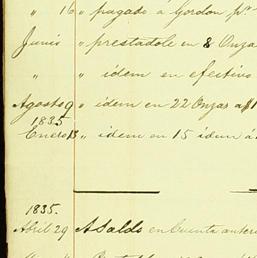 " 16 " pagado a Gordon pr
Junio " prestadole en 8 Onza
" " idem en efectivo
Agosto 9 " idem en 22 Onzas a $1
1835
Enero 13 " idem en 15 idem á
1835.
Abril 29 A Saldo en Cuenta anteri